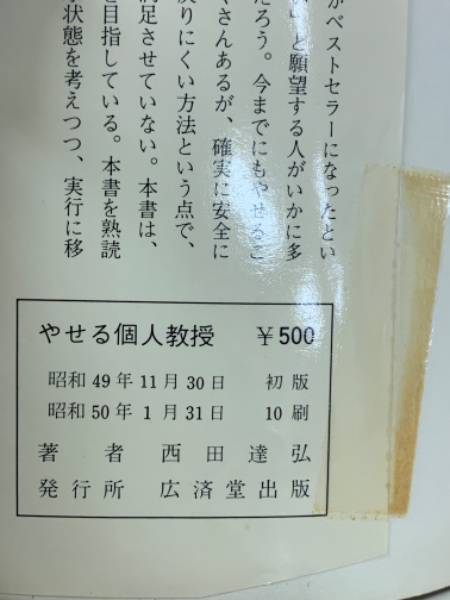 がベストセラーになったとい
い」と願望する人がいかに多
だろう。今までにもやせるこ
くさんあるが、確実に安全に
戻りにくい方法という点で、
満足させていない。本書は、
を目指している。本書を熟読
状態を考えつつ、実行に移
やせる個人教授 ￥500
昭和49年11月30日 初版
昭和50年1月31日 10刷
著者 西田達弘
発行所 広済堂出版